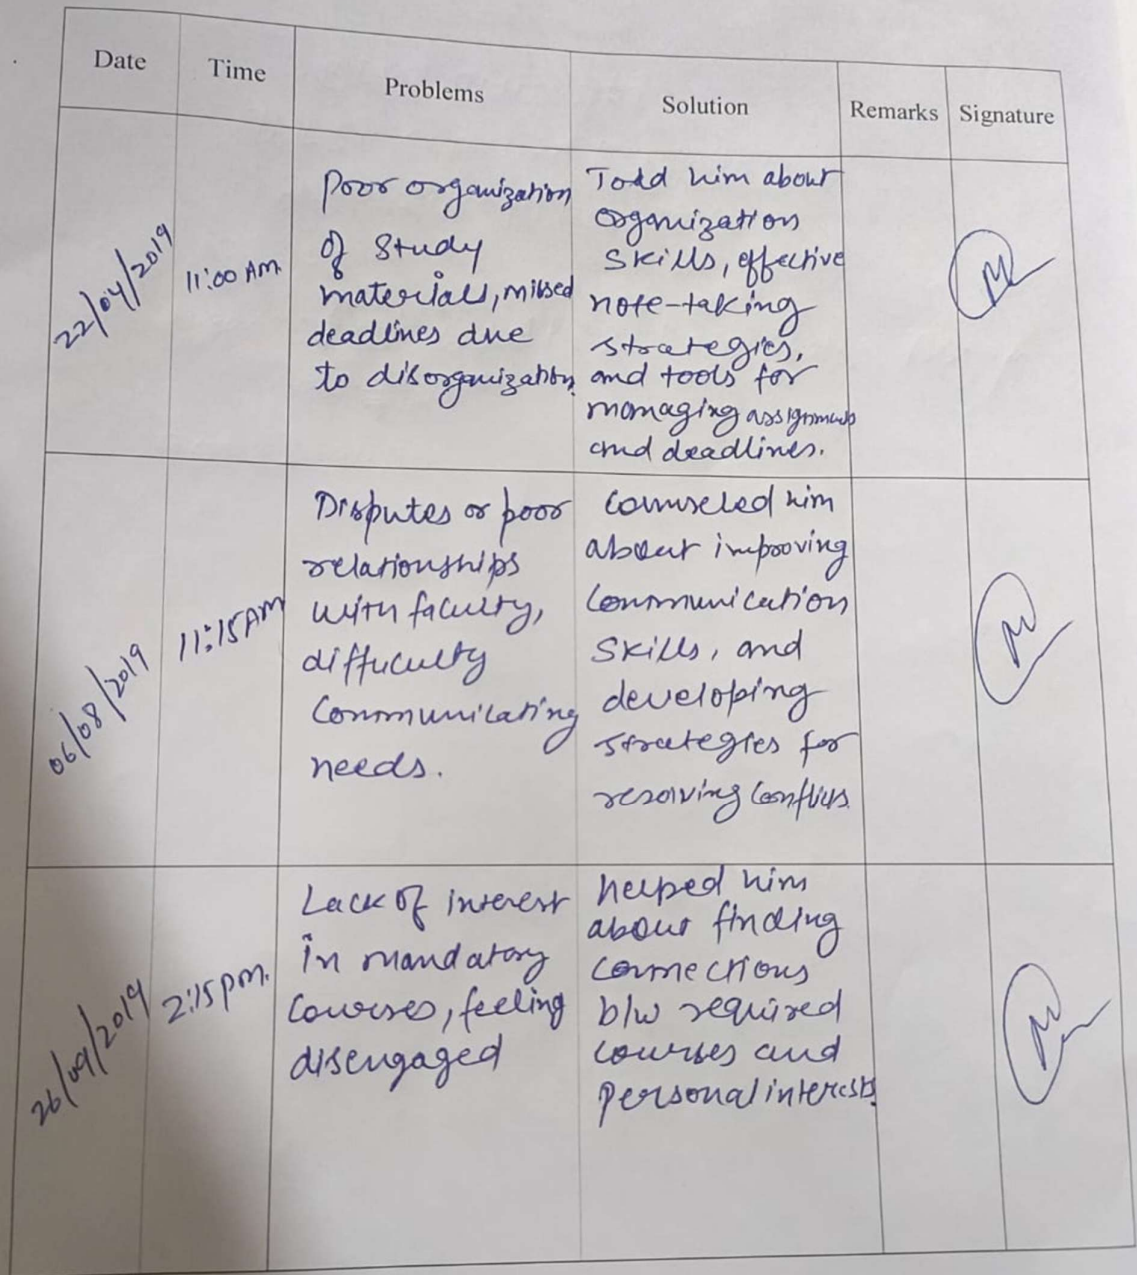 Date Time Problems Solution Remarks Signature
22/04/2019
11:00 Am.
Poor organization
of study
materials, missed
deadlines due
to disorganization
Told him about
organization
skills, effective
note-taking
strategies,
and tools for
managing assignments
and deadlines.
06/08/2019
11:15 AM
Disputes or poor
relationships
with faculty,
diffuculty
Communicating
needs.
Counseled him
about improving
Communication
Skills, and
developing
strategies for
resolving Conflicts
26/09/2019
2:15 pm.
Lack of interest
in mandatory
Courses, feeling
disengaged
helped him
about finding
connections
b/w required
courses and
personal interests.